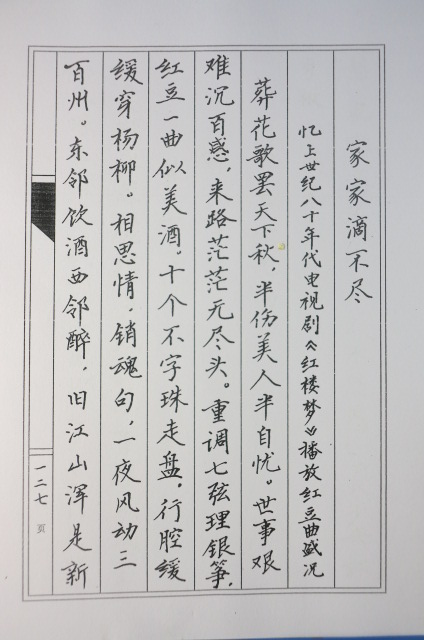 家家滴不尽
忆上世纪八十年代电视剧《红楼梦》播放红豆曲盛况
葬花歌罢天下秋，半伤美人半自忧。世事艰
难沉百惑，来路茫茫无尽头。重调七弦理银筝，
红豆一曲似美酒。十个不字珠走盘，行腔缓
缓穿杨柳。相思情，销魂句，一夜风动三
百州。东邻饮酒西邻醉，旧江山浑是新
一二七页